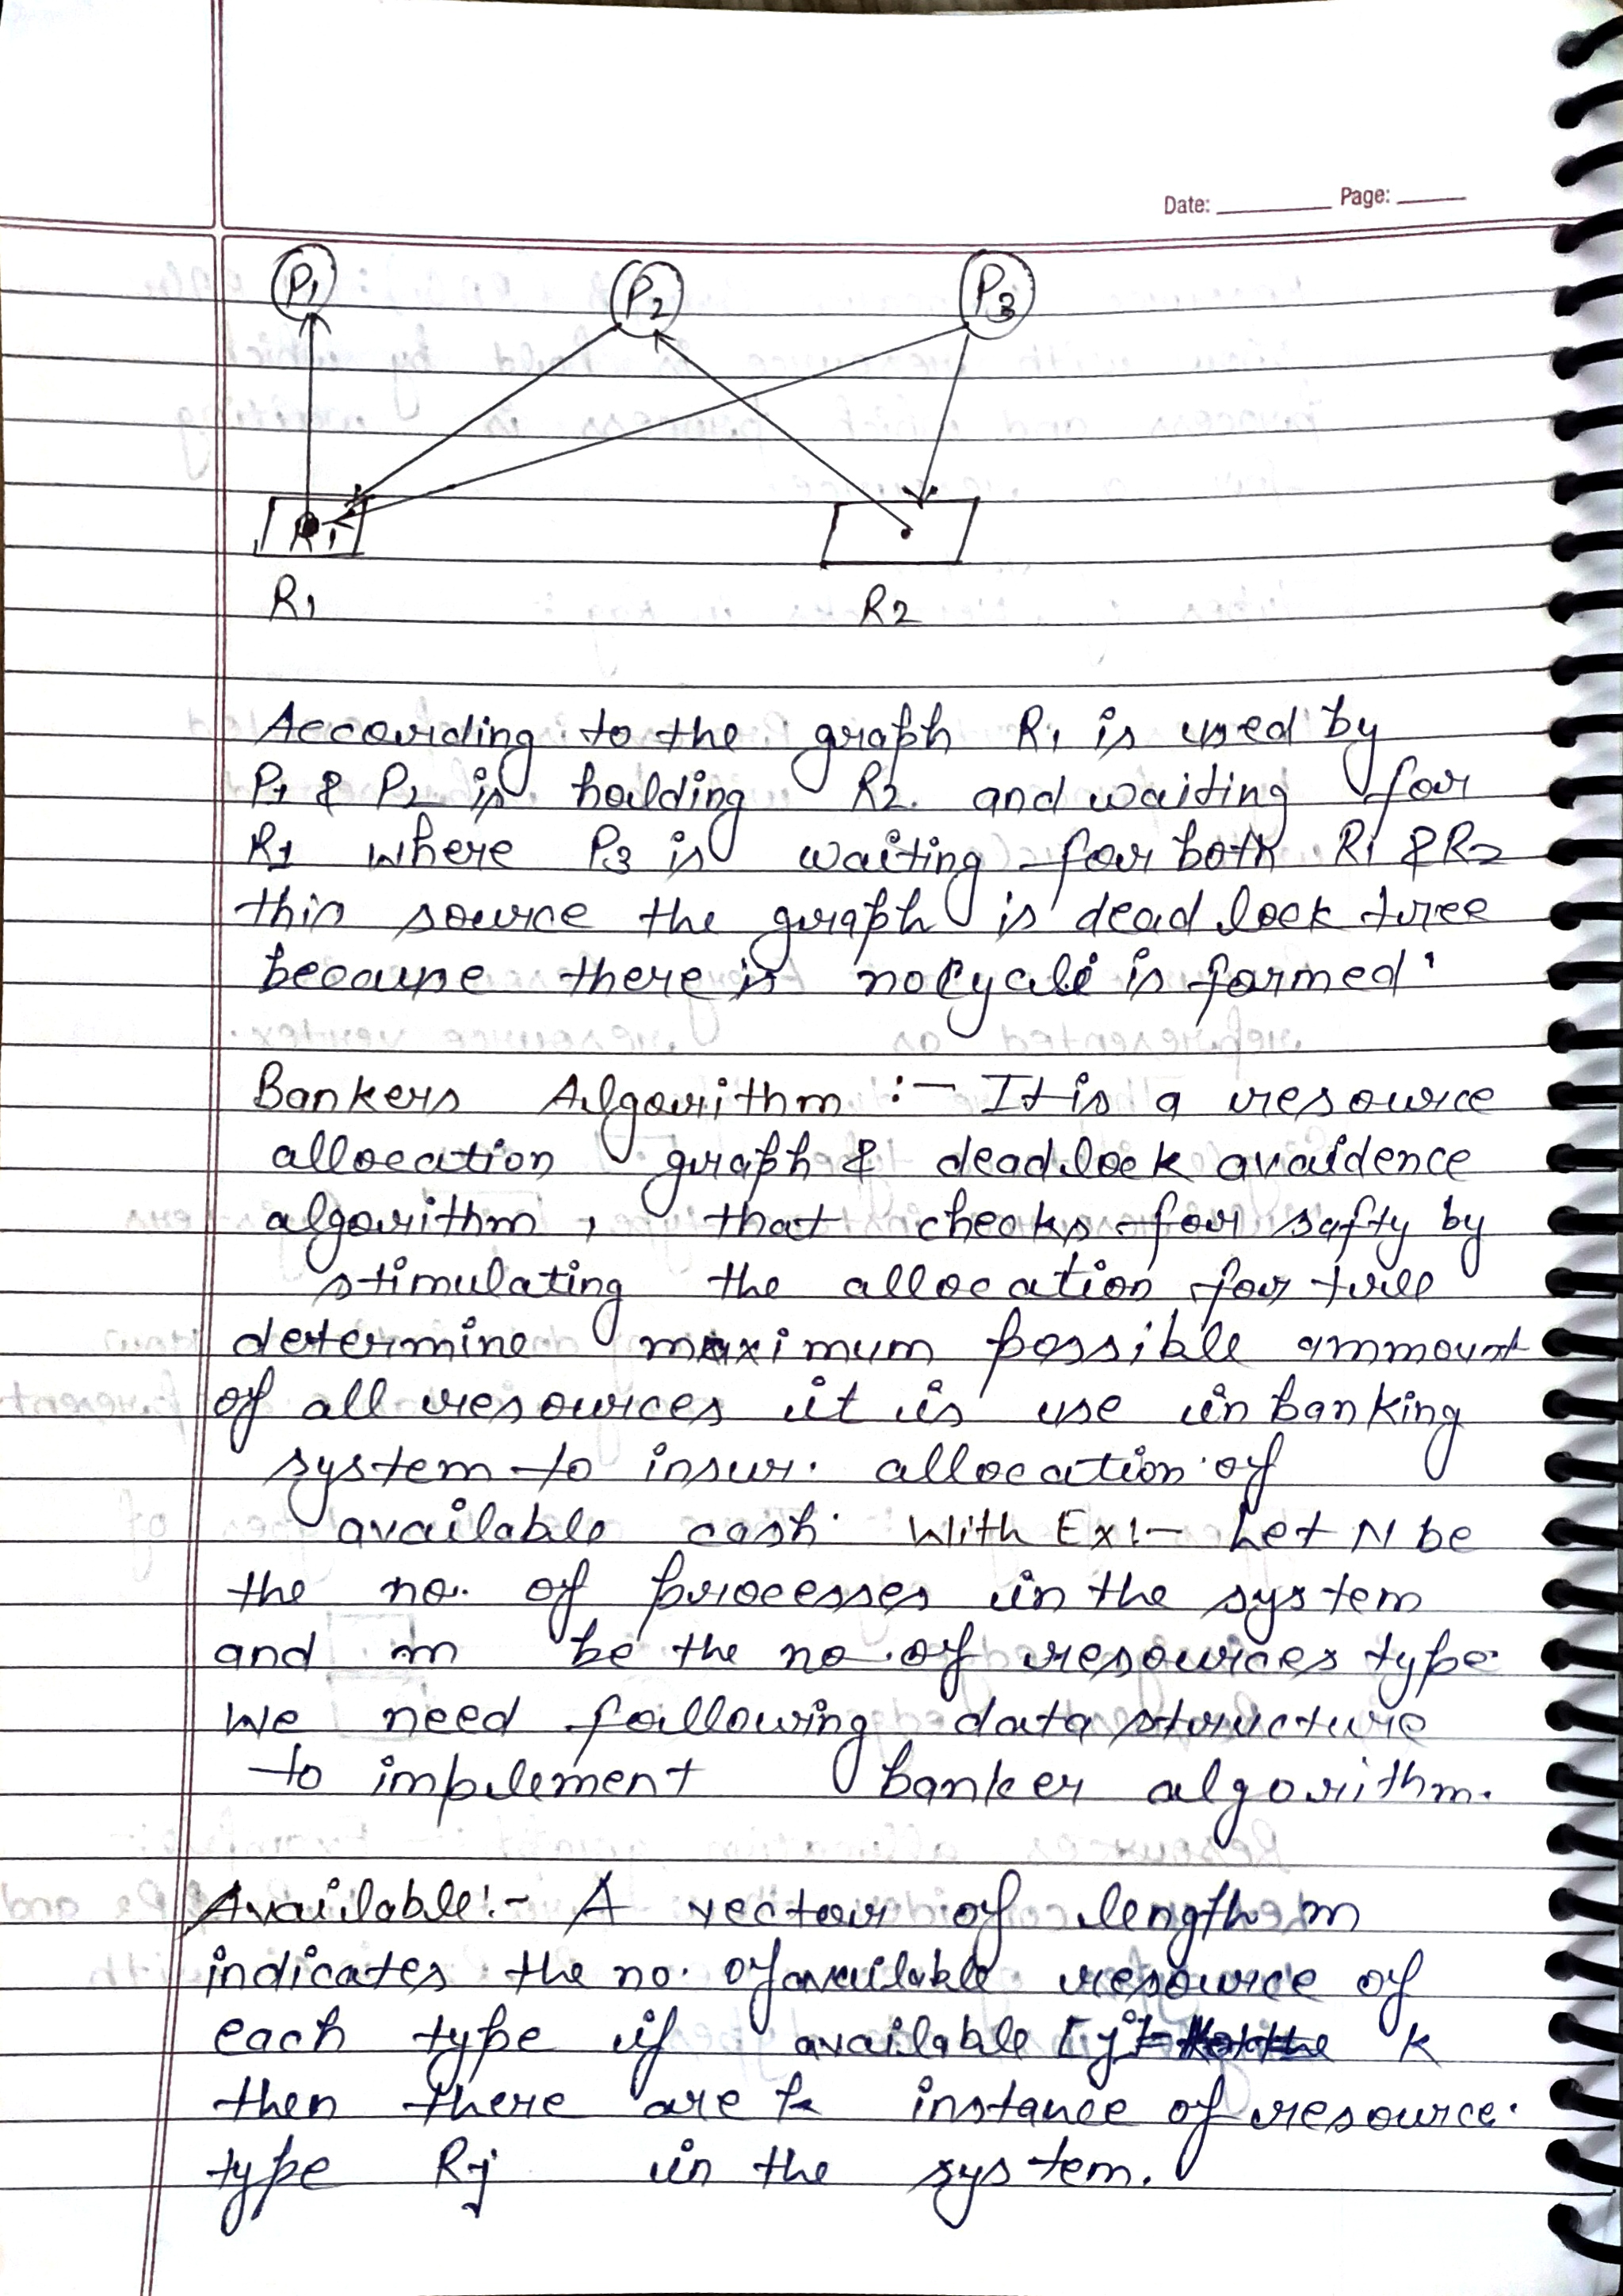 Date: Page:
P1 P2 P3
R1
R1 R2
According to the graph R1 is used by
P1 & P2 is holding R2 and waiting for
R1 where P3 is waiting for both R1 & R2
this source the graph is dead lock free
because there is no cycle is formed.
Bankers Algorithm :- It is a resource
allocation graph & deadlock avoidence
algorithm, that checks for safty by
stimulating the allocation for
determine maximum possible ammount
of all resources it is use in banking
system to insur. allocation of
available cash. With Ex:- Let N be
the no. of processes in the system
and m be the no. of resources type
We need following data structure
to implement banker algorithm.
Available:- A vector of length m
indicates the no. of available resource of
each type if available [j] = k
then there are k instance of resource.
type Rj in the system.